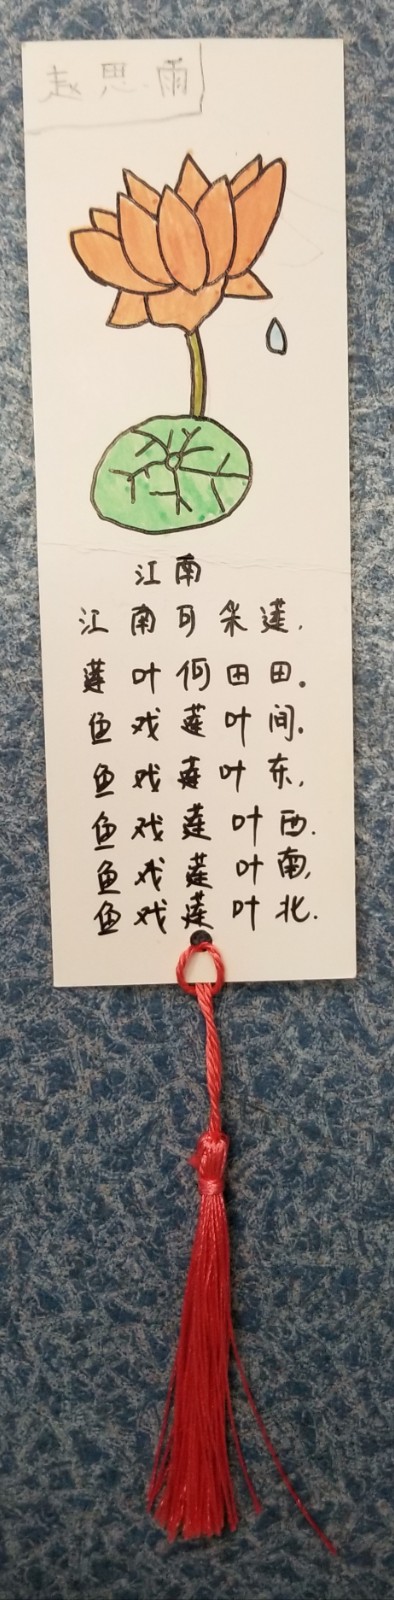 赵思雨
江南
江南可采莲,
莲叶何田田。
鱼戏莲叶间。
鱼戏莲叶东,
鱼戏莲叶西.
鱼戏莲叶南,
鱼戏莲叶北.